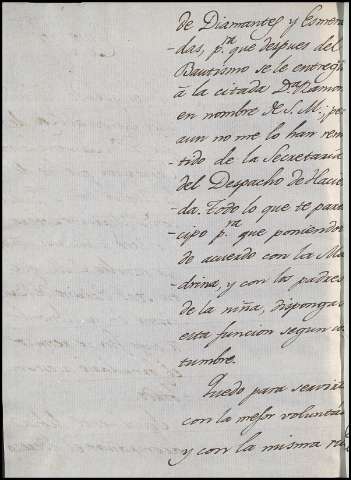 de Diamantes y Esmeral
das, p.ra que despues del
Bautismo se le entregu
à la citada D.a Ramon
en nombre de S. M.; per
aun no me lo han remi
tido de la Secretaria
del Despacho de Hacie
da. Todo lo que te parti
cipo p.ra que poniendo
de acuerdo con la Ma
drina, y con los padres
de la niña, dispongas
esta funcion segun cos
tumbre.
Quedo para servir
con la mejor volunta
y con la misma